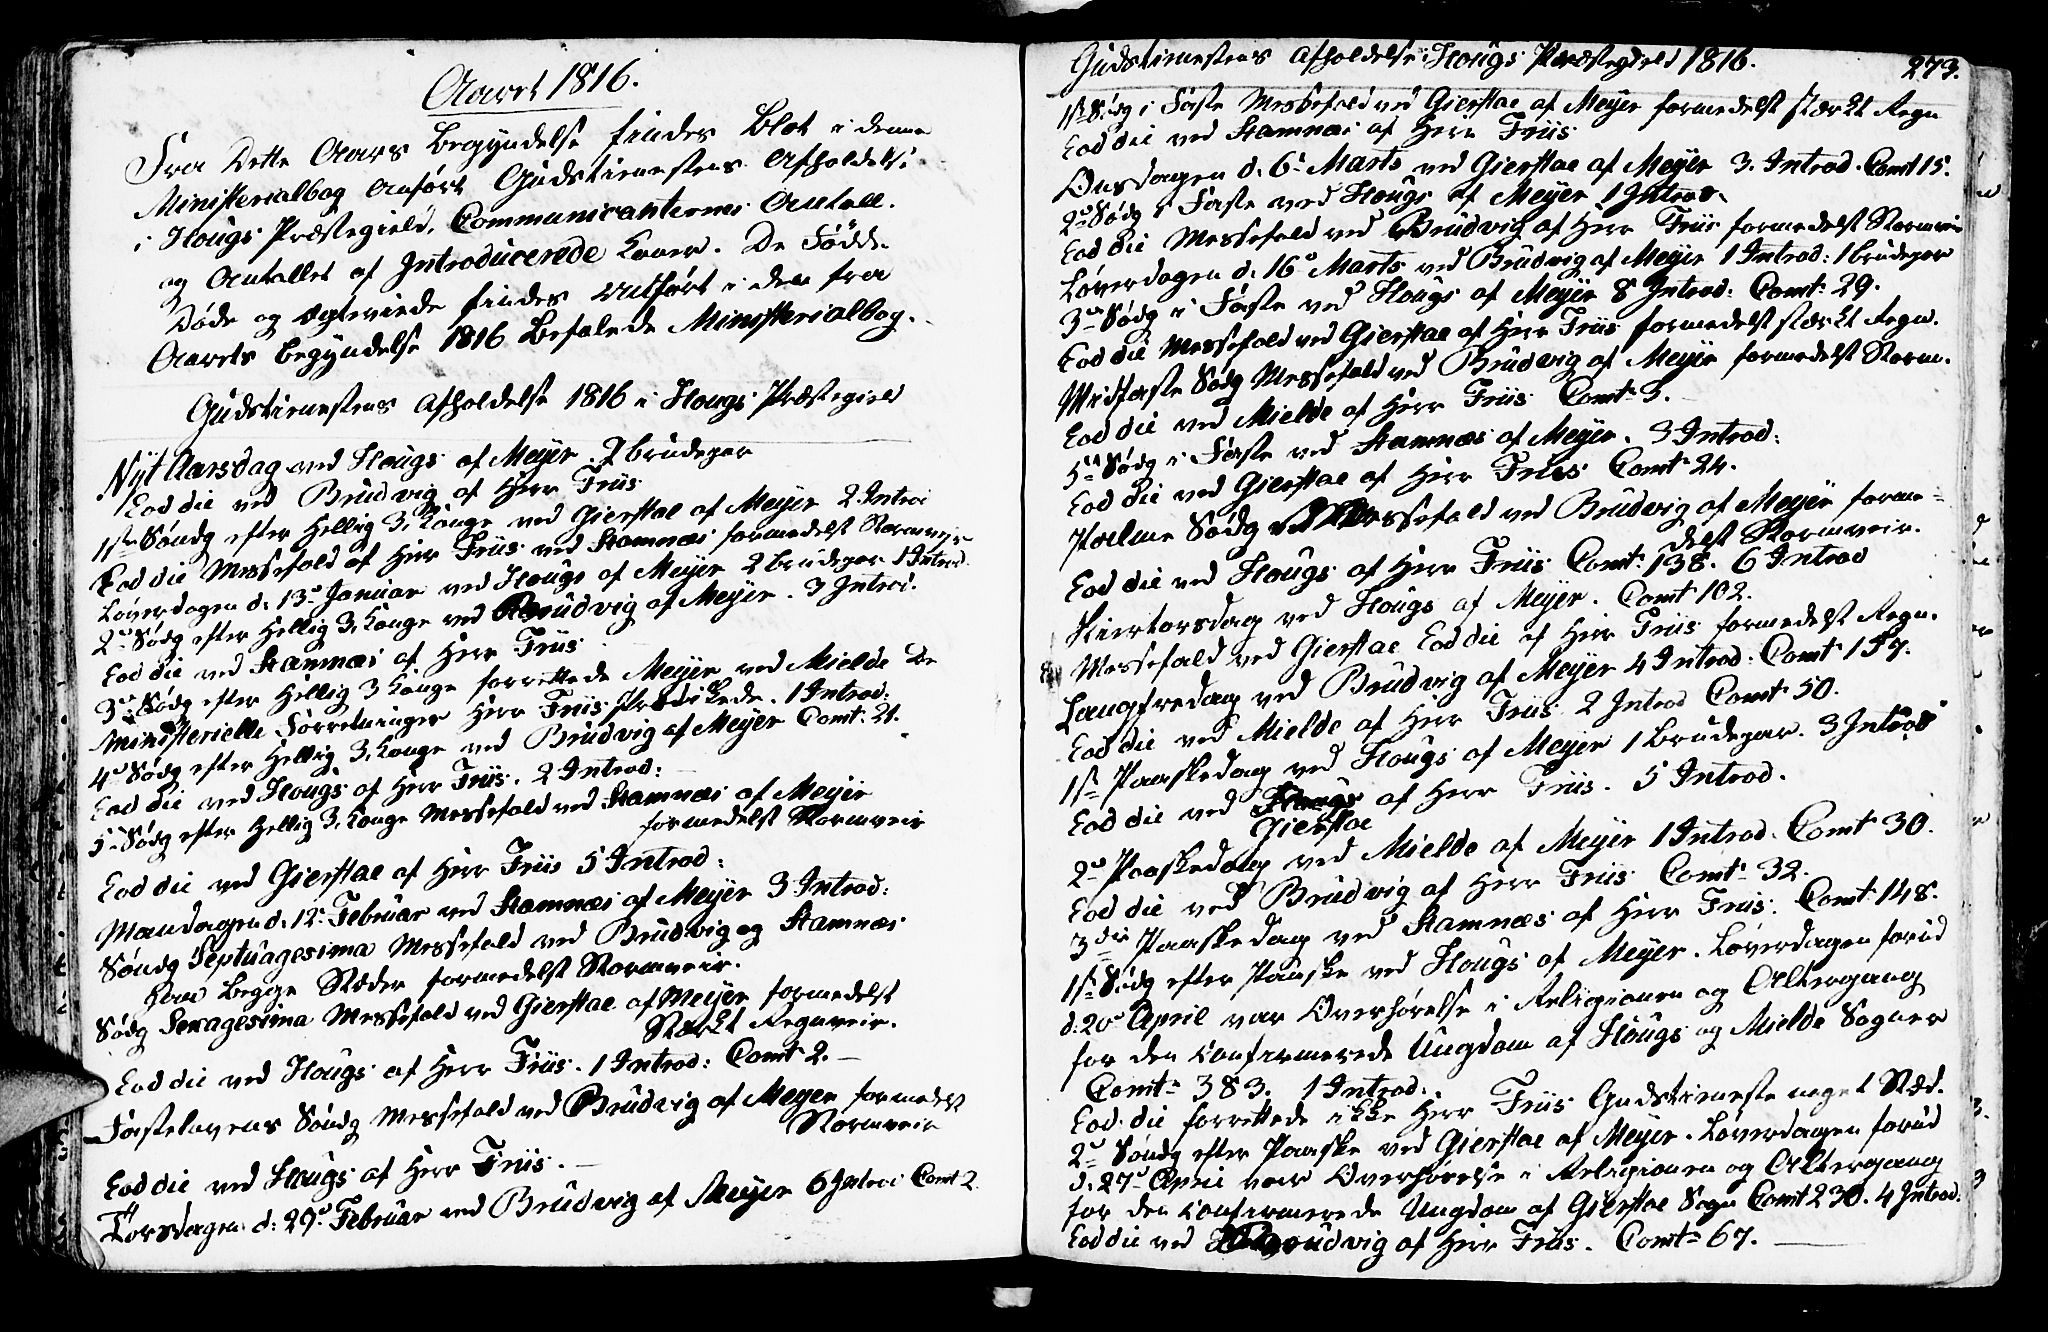 Aaret 1816.
Fra Dette Aars Begyndelse findes Blot i denne
Ministerialbog Anført Gudstienestens Afholdelse
i Hougs Præstegield, Communicanternes Antall.
og Antallet af Introducerede Koner. De Fødde
Døde og Ægteviede findes Anført i den fra
Aarets Begyndelse 1816 Befalede Ministerialbog.
Gudstienestens Afholdelse 1816 i Hougs Præstegield
Nyt Aarsdag ved Hougs af Meyer. 2 brudepar
Eod die ved Brudvig af Herr Friis
1ste Søndg efter Hellig 3 Konge ved Gierstae af Meyer 2 Introd
Eod die Messefald af Herr Friis ved Stamnæs formedelst Stormveir
Løverdagen d: 13de Januar ved Hougs af Meyer 2 brudepar 1 Introd.
2den Sødg efter Hellig 3 Konge ved Brudvig af Meyer. 3 Introd.
Eod die ved Stamnæs af Herr Friis
3die Sødg efter Hellig 3 Konge forrettede Meyer ved Mielde De
Ministerielle Forretninger Herr Friis Prædikede. 1 Introd:
4de Sødg efter Hellig 3 Konge ved Brudvig af Meyer Comt: 21.
Eod die ved Hougs af Herr Friis. 2 Introd:
5te Sødg efter Hellig 3 Konge Messefald ved Stamnæs af Meyer
formedelst Stormveir
Eod die ved Gierstae af Herr Friis 5 Introd:
Mandagen d: 12te Februar ved Stamnæs af Meyer 3 Introd:
Søndg Septuagesima Messefald ved Brudvig og Stamnæs
paa begge Stæder formedelst Stormveir.
Sødg Sexagesima Messefald ved Gierstae af Meyer formedelst
Stærkt Regnveir.
Eod die ved Hougs af Herr Friis. 1 Introd: Comt 2. —
Fastelavens Søndg Messefald ved Brudvig af Meyer formedelst
Stormveir
Eod die ved Hougs af Herr Friis. —
Torsdagen d: 29de Februar ved Brudvig af Meyer 6 Introd Comt 2
Gudstienestens Afholdelse i Hougs Præstegield 1816.
273.
1ste Sødg i Faste Messefald ved Gierstae af Meyer formedelst stærkt Regn
Eod die ved Stamnæs af Herr Friis
Onsdagen d. 6te Marts ved Gierstae af Meyer 3. Introd. Comt 15.
2den Sødg i Faste ved Hougs af Meyer 1 Introd.
Eod die Messefald ved Brudvig af Herr Friis formedelst Stormveir
Løverdagen d: 16de Marts ved Brudvig af Meyer 1 Introd: 1 brudepar
3die Sødg i Faste ved Hougs af Meyer 8 Introd: Comt: 29.
Eod die Messefald ved Gierstae af Herr Friis formedelst stærkt Regn.
Midfaste Sødg Messefald ved Brudvig af Meyer formedelst Storm.
Eod die ved Mielde af Herr Friis Comt 3.
5te Sødg i Faste ved Stamnæs af Meyer. 3 Introd:
Eod die ved Gierstae af Herr Friis Comt 24.
Palme Sødg Messefald ved Brudvig af Meyer forme-
delst Stormveir.
Eod die ved Hougs af Herr Friis Comt: 138. 6 Introd
Skiertorsdag ved Hougs af Meyer. Comt 102.
Messefald ved Gierstae Eod die af Herr Friis formedelst Regn.
Langfredag ved Brudvig af Meyer 4 Introd: Comt 157.
Eod die ved Mielde af Herr Friis 2 Introd Comt 50.
1ste Paaskedag ved Hougs af Meyer 1 brudepar. 3 Introd
Eod die ved Hougs af Herr Friis. 5 Introd.
Gierstae
2den Paaskedag ved Mielde af Meyer 1 Introd. Comt 30.
Eod die ved Brudvig af Herr Friis Comt 32.
3die Paaskedag ved Stamnæs af Herr Friis. Comt 148.
1ste Sødg efter Paaske ved Hougs af Meyer. Løverdagen forud
d: 20de April var Overhørelse i Religionen og Altergang
for den Confirmerede Ungdom af Hougs og Mielde Sogner
Comt 383. 1 Introd:
Eod die forrettede ikke Herr Friis Gudstieneste noget Sted.
2den Søndg efter Paaske ved Gierstae af Meyer. Løverdagen forud
d. 27de April var Overhørelse i Religionen og Altergang
for den Confirmerede Ungdom af Gierstae Sogn Comt 230. 4 Introd:
Eod die ved Brudvig af Herr Friis. Comt 67. —